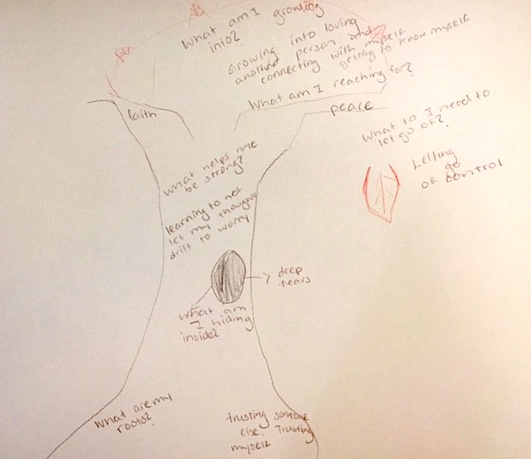 What am I growing
into?
Growing into loving
another person and
connecting with myself
getting to know myself
What am I reaching for?
faith
peace
What to I need to
let go of?
Letting
go
of control
What helps me
be strong?
learning to not
let my thoughts
drift to worry
deep
tears
What am
I hiding
inside?
What are my
roots?
trusting someone
else. Trusting
myself